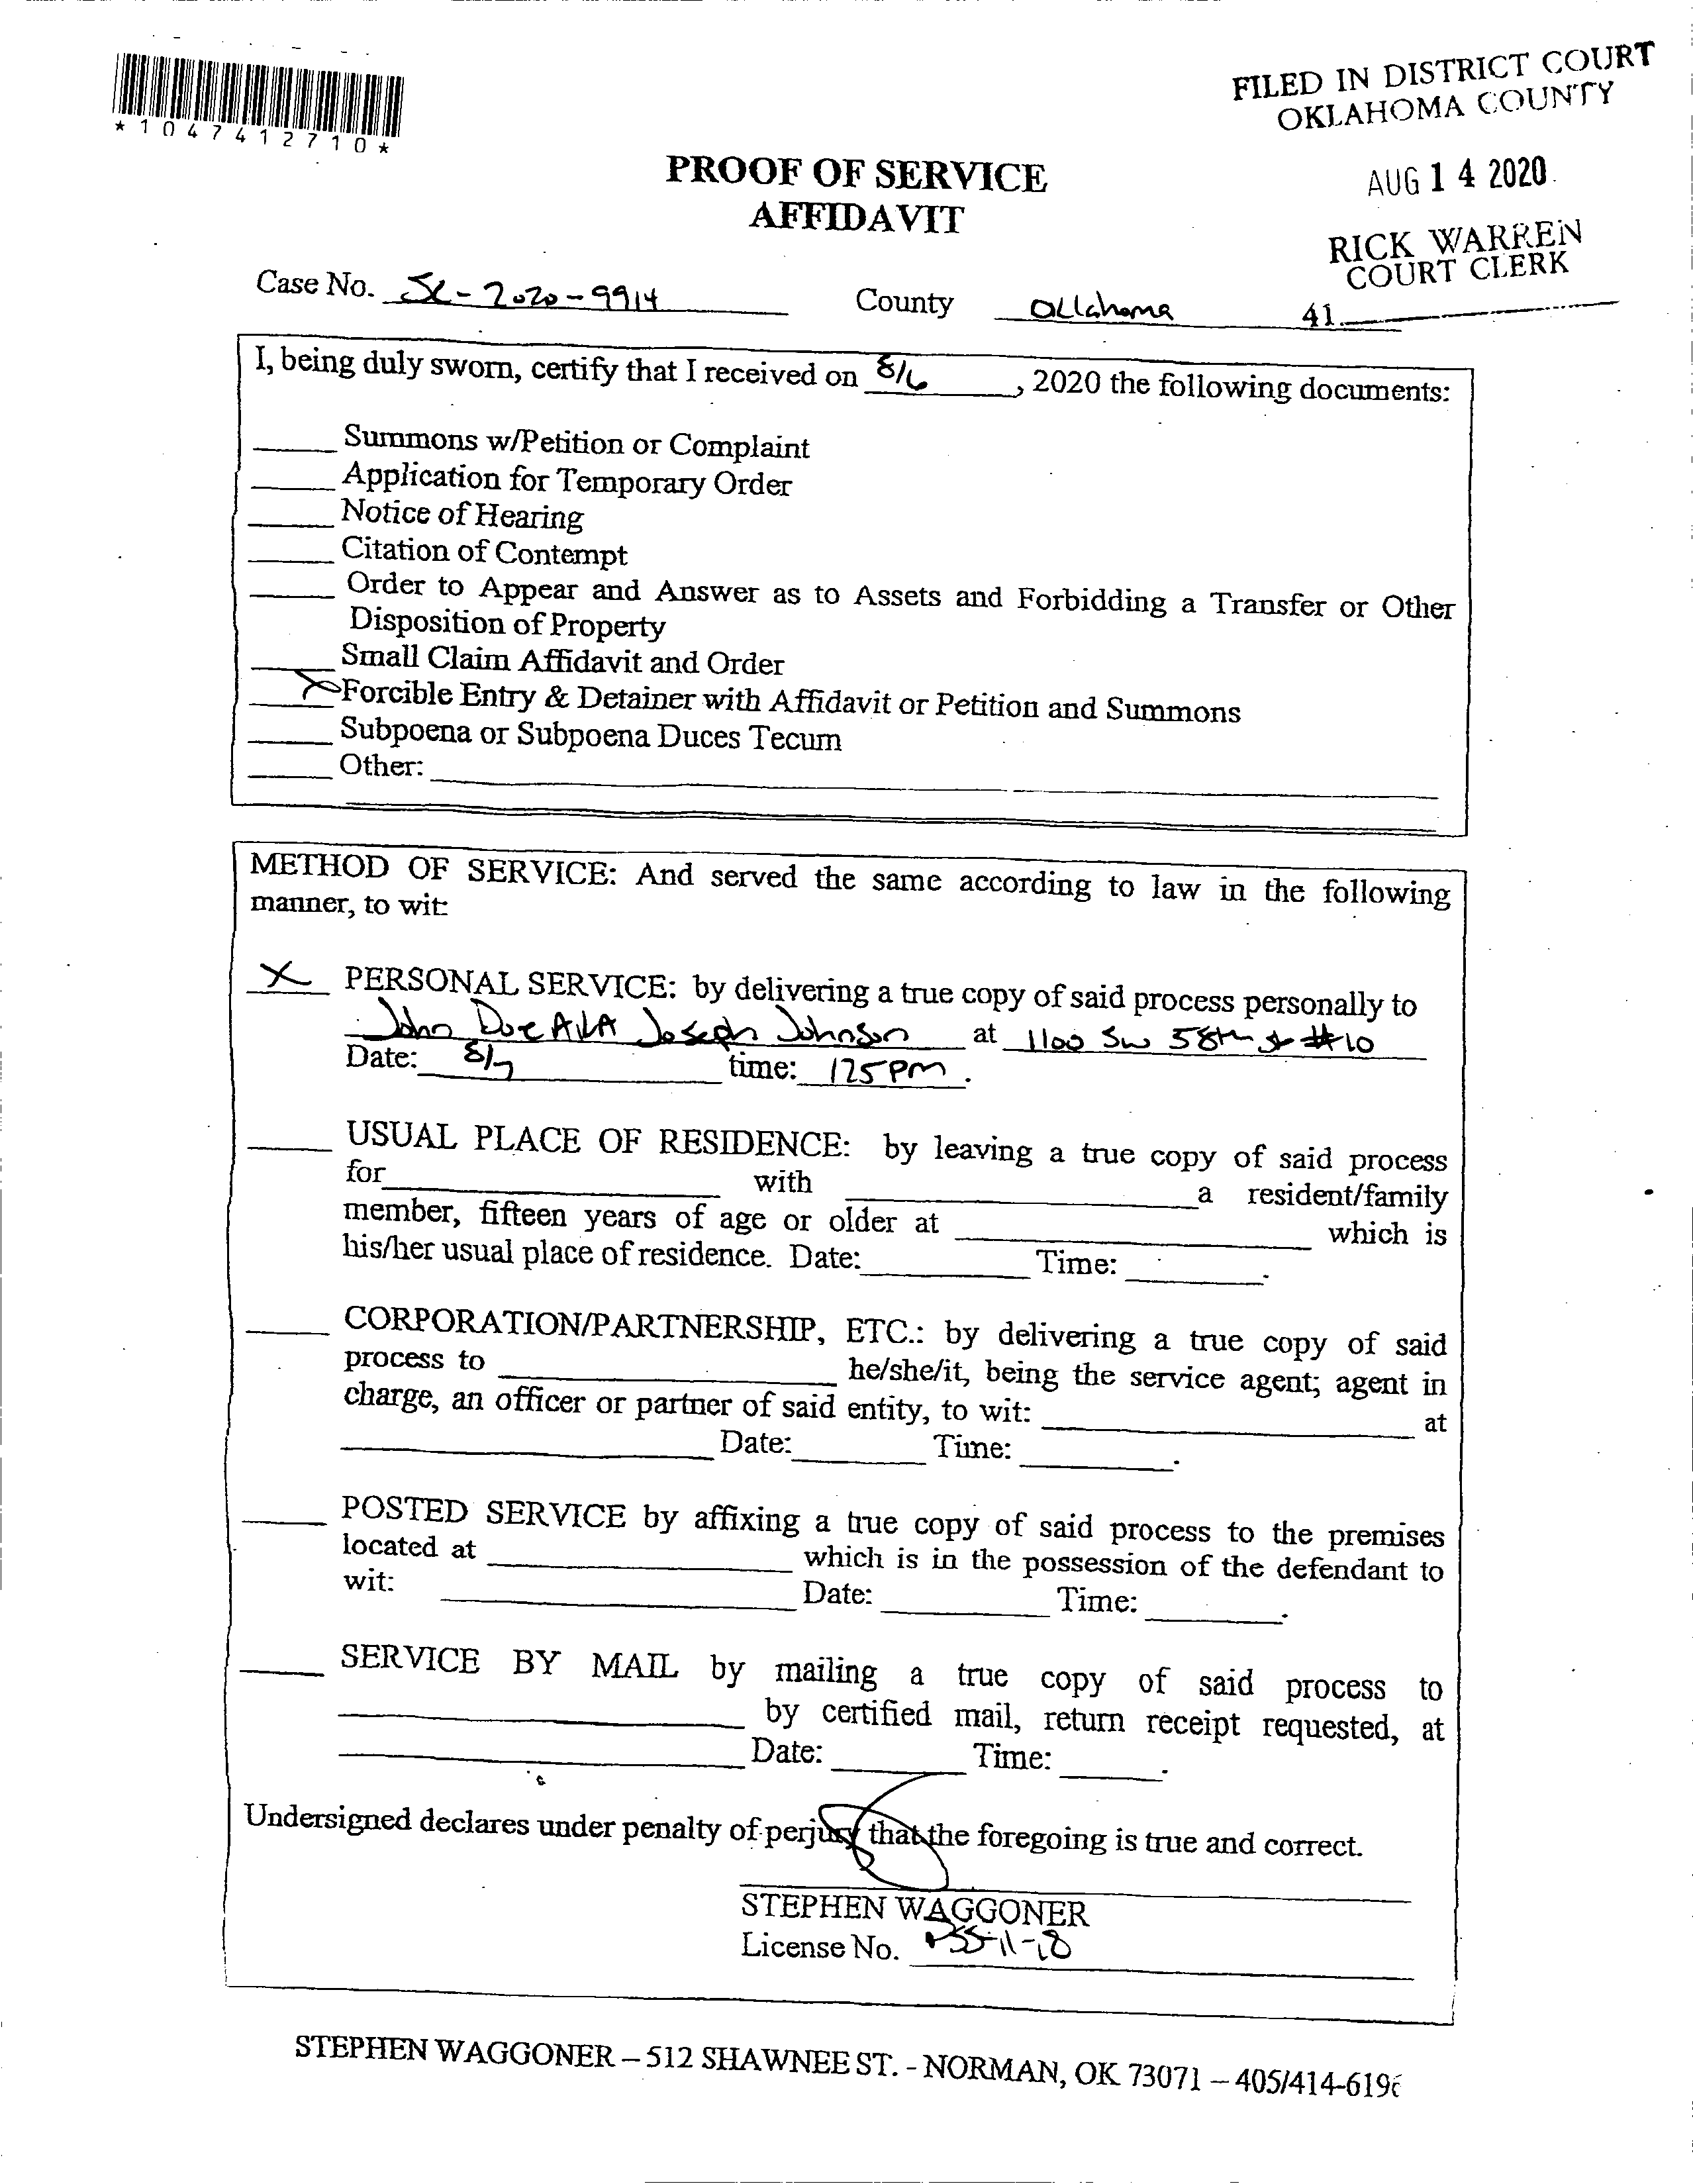 *1047412710*
FILED IN DISTRICT COURT
OKLAHOMA COUNTY
AUG 14 2020
RICK WARREN
COURT CLERK
41
PROOF OF SERVICE
AFFIDAVIT
Case No. SC-2020-9914 County Oklahoma
I, being duly sworn, certify that I received on 8/6, 2020 the following documents:
Summons w/Petition or Complaint
Application for Temporary Order
Notice of Hearing
Citation of Contempt
Order to Appear and Answer as to Assets and Forbidding a Transfer or Other
Disposition of Property
Small Claim Affidavit and Order
X Forcible Entry & Detainer with Affidavit or Petition and Summons
Subpoena or Subpoena Duces Tecum
Other:
METHOD OF SERVICE: And served the same according to law in the following
manner, to wit:
X PERSONAL SERVICE: by delivering a true copy of said process personally to
John Doe AKA Joseph Johnson at 1100 SW 58th St #10
Date: 8/7 time: 125 pm.
USUAL PLACE OF RESIDENCE: by leaving a true copy of said process
for with a resident/family
member, fifteen years of age or older at which is
his/her usual place of residence. Date: Time: .
CORPORATION/PARTNERSHIP, ETC.: by delivering a true copy of said
process to he/she/it, being the service agent; agent in
charge, an officer or partner of said entity, to wit: at
Date: Time: .
POSTED SERVICE by affixing a true copy of said process to the premises
located at which is in the possession of the defendant to
wit: Date: Time: .
SERVICE BY MAIL by mailing a true copy of said process to
by certified mail, return receipt requested, at
Date: Time: .
Undersigned declares under penalty of perjury that the foregoing is true and correct.
STEPHEN WAGGONER
License No. PSS-11-18
STEPHEN WAGGONER – 512 SHAWNEE ST. - NORMAN, OK 73071 – 405/414-6196